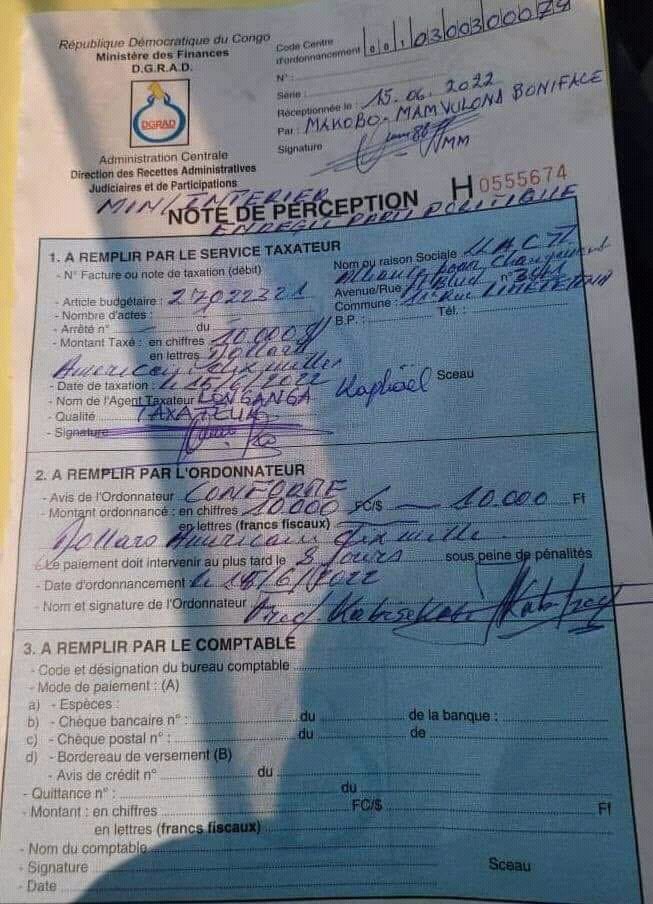 République Démocratique du Congo
Ministère des Finances
D.G.R.A.D.
DGRAD
Administration Centrale
Direction des Recettes Administratives
Judiciaires et de Participations
Code Centre
d'ordonnancement 00103030007
N° :
Série :
Réceptionnée le : 15.06.2022
Par : MAKOBO-MAMVULONA BONIFACE
Signature
MIN/INTERIER
NOTE DE PERCEPTION H 0555674
ENREG PARTI POLITIQUE
1. A REMPLIR PAR LE SERVICE TAXATEUR
- N° Facture ou note de taxation (débit)
- Article budgétaire : 27022321
- Nombre d'actes :
- Arrêté n° du
- Montant Taxé : en chiffres 10.000 $
en lettres Dollars
Americain dix mille
- Date de taxation : le 15/6/2022
- Nom de l'Agent Taxateur LONGANGA Raphaël
- Qualité TAXATEUR
- Signature
Nom ou raison Sociale
Alliance pour Changement
Avenue/Rue Blvd n°
Commune : 11e Rue LIMETE
B.P. : Tél. :
Sceau
2. A REMPLIR PAR L'ORDONNATEUR
- Avis de l'Ordonnateur CONFORME
- Montant ordonnancé : en chiffres 10.000 FC/$ 10.000 Ff
en lettres (francs fiscaux)
Dollars Americain dix mille
Le paiement doit intervenir au plus tard le 8 jours sous peine de pénalités
- Date d'ordonnancement le 15/6/2022
- Nom et signature de l'Ordonnateur
3. A REMPLIR PAR LE COMPTABLE
- Code et désignation du bureau comptable
- Mode de paiement : (A)
a) - Espèces :
b) - Chèque bancaire n° : du de la banque :
c) - Chèque postal n° : du de
d) - Bordereau de versement (B)
- Avis de crédit n° du
- Quittance n° : du
- Montant : en chiffres FC/$ Ff
en lettres (francs fiscaux)
- Nom du comptable
- Signature Sceau
- Date